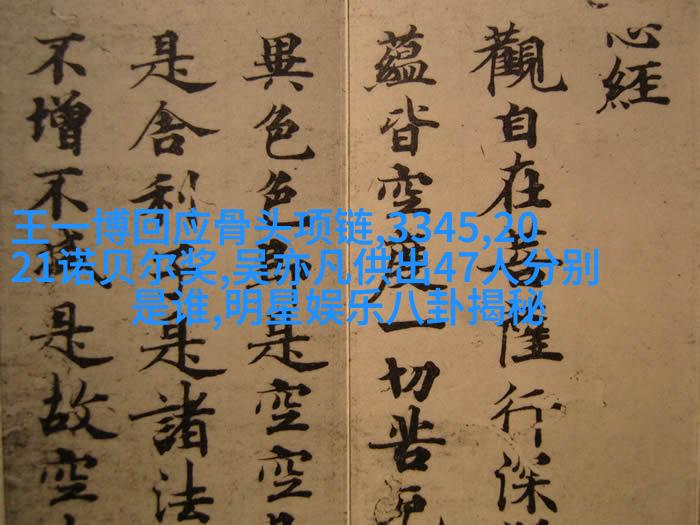 心經
觀自在菩薩行深
蘊皆空度一切苦厄
異色色即是空空
是舍利子是諸法
不增不減是故空
王一博回应骨头项链,3345,20
21诺贝尔奖,吴亦凡供出47人分别
是谁,明星娱乐八卦揭秘